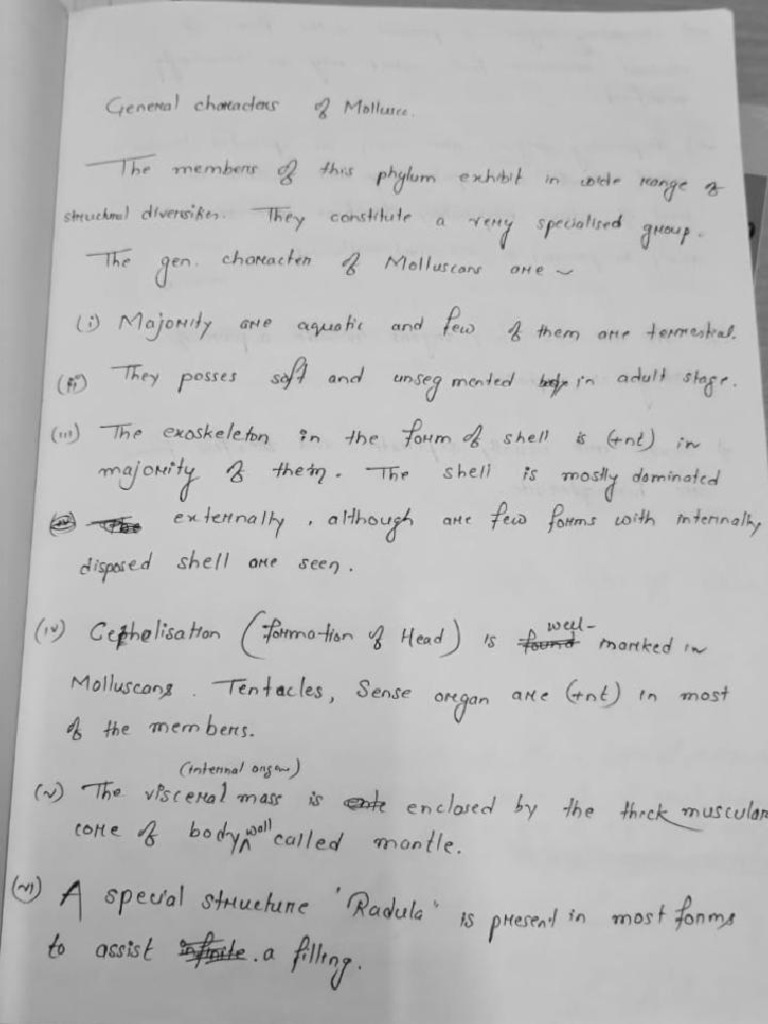 General characters of Mollusca.
The members of this phylum exhibit in wide range of
structural diversities. They constitute a very specialised group.
The gen. character of Molluscans are ~
(i) Majority are aquatic and few of them are terrestrial.
(ii) They posses soft and unsegmented body in adult stage.
(iii) The exoskeleton in the form of shell is (+nt) in
majority of them. The shell is mostly dominated
externally, although are few forms with internally
disposed shell are seen.
(iv) Cephalisation (formation of Head) is well-marked in
Molluscans. Tentacles, Sense organ are (+nt) in most
of the members.
(internal organ)
(v) The visceral mass is enclosed by the thick muscular
core of body wall called mantle.
(vi) A special structure 'Radula' is present in most forms
to assist a filling.